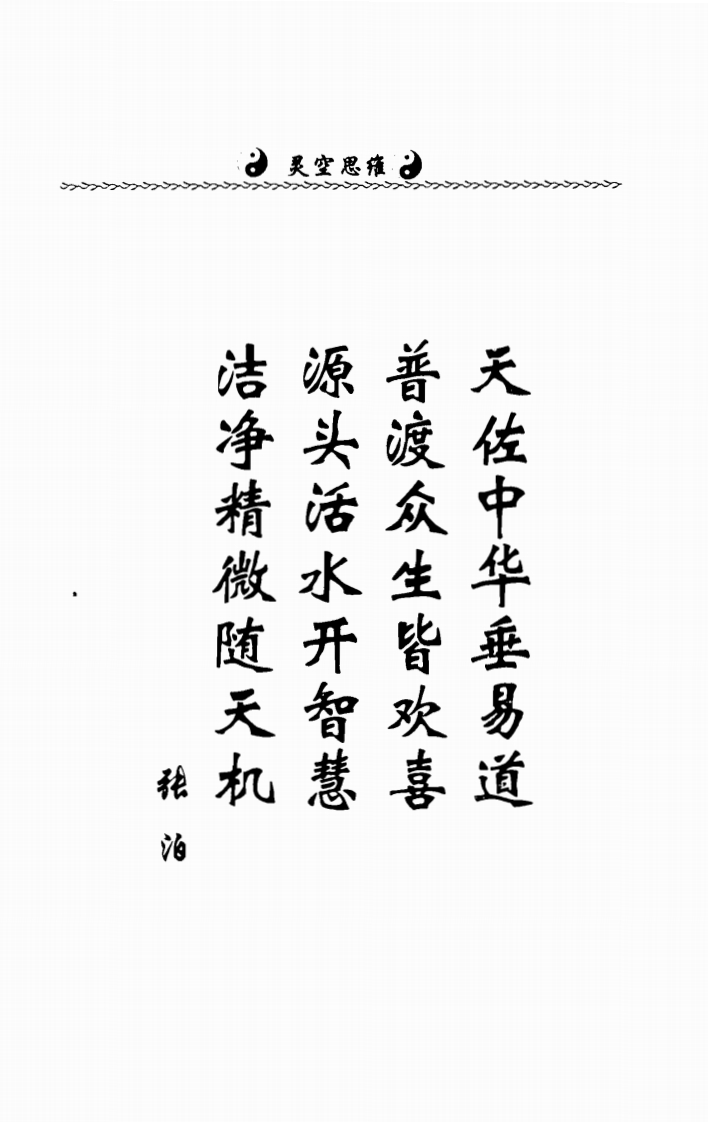 灵空思维
天佐中华垂易道
普渡众生皆欢喜
源头活水开智慧
洁净精微随天机
张泊